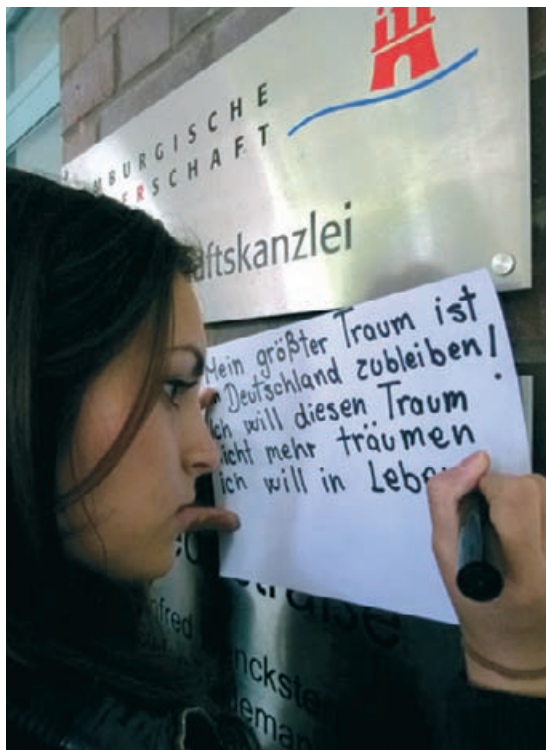 MBURGISCHE
ERSCHAFT
aftskanzlei
Mein größter Traum ist
Deutschland zubleiben!
Ich will diesen Traum
nicht mehr träumen
ich will in Lebe
straße
nfred
nckste
deman